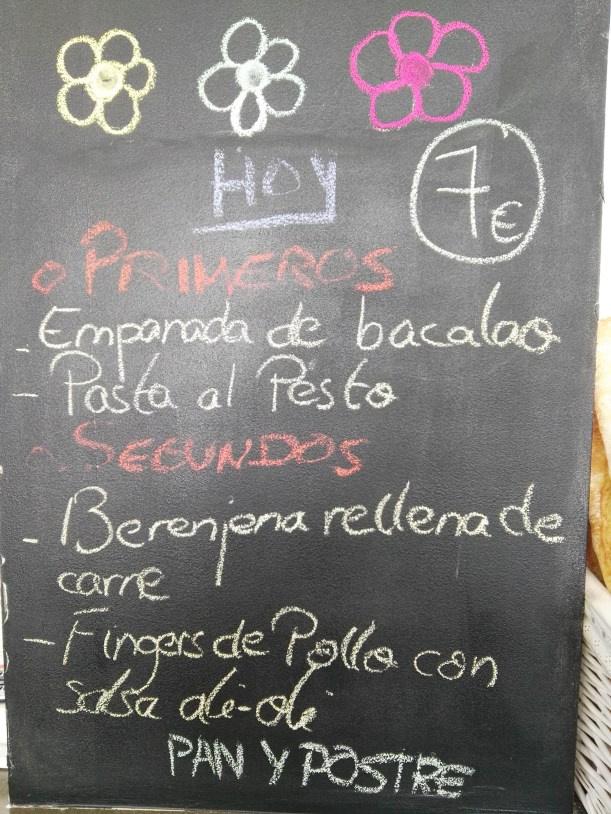 HOY
7€
o PRIMEROS
- Empanada de bacalao
- Pasta al Pesto
o SEGUNDOS
- Berenjena rellena de
carne
- Fingers de Pollo con
salsa ali-oli
PAN Y POSTRE